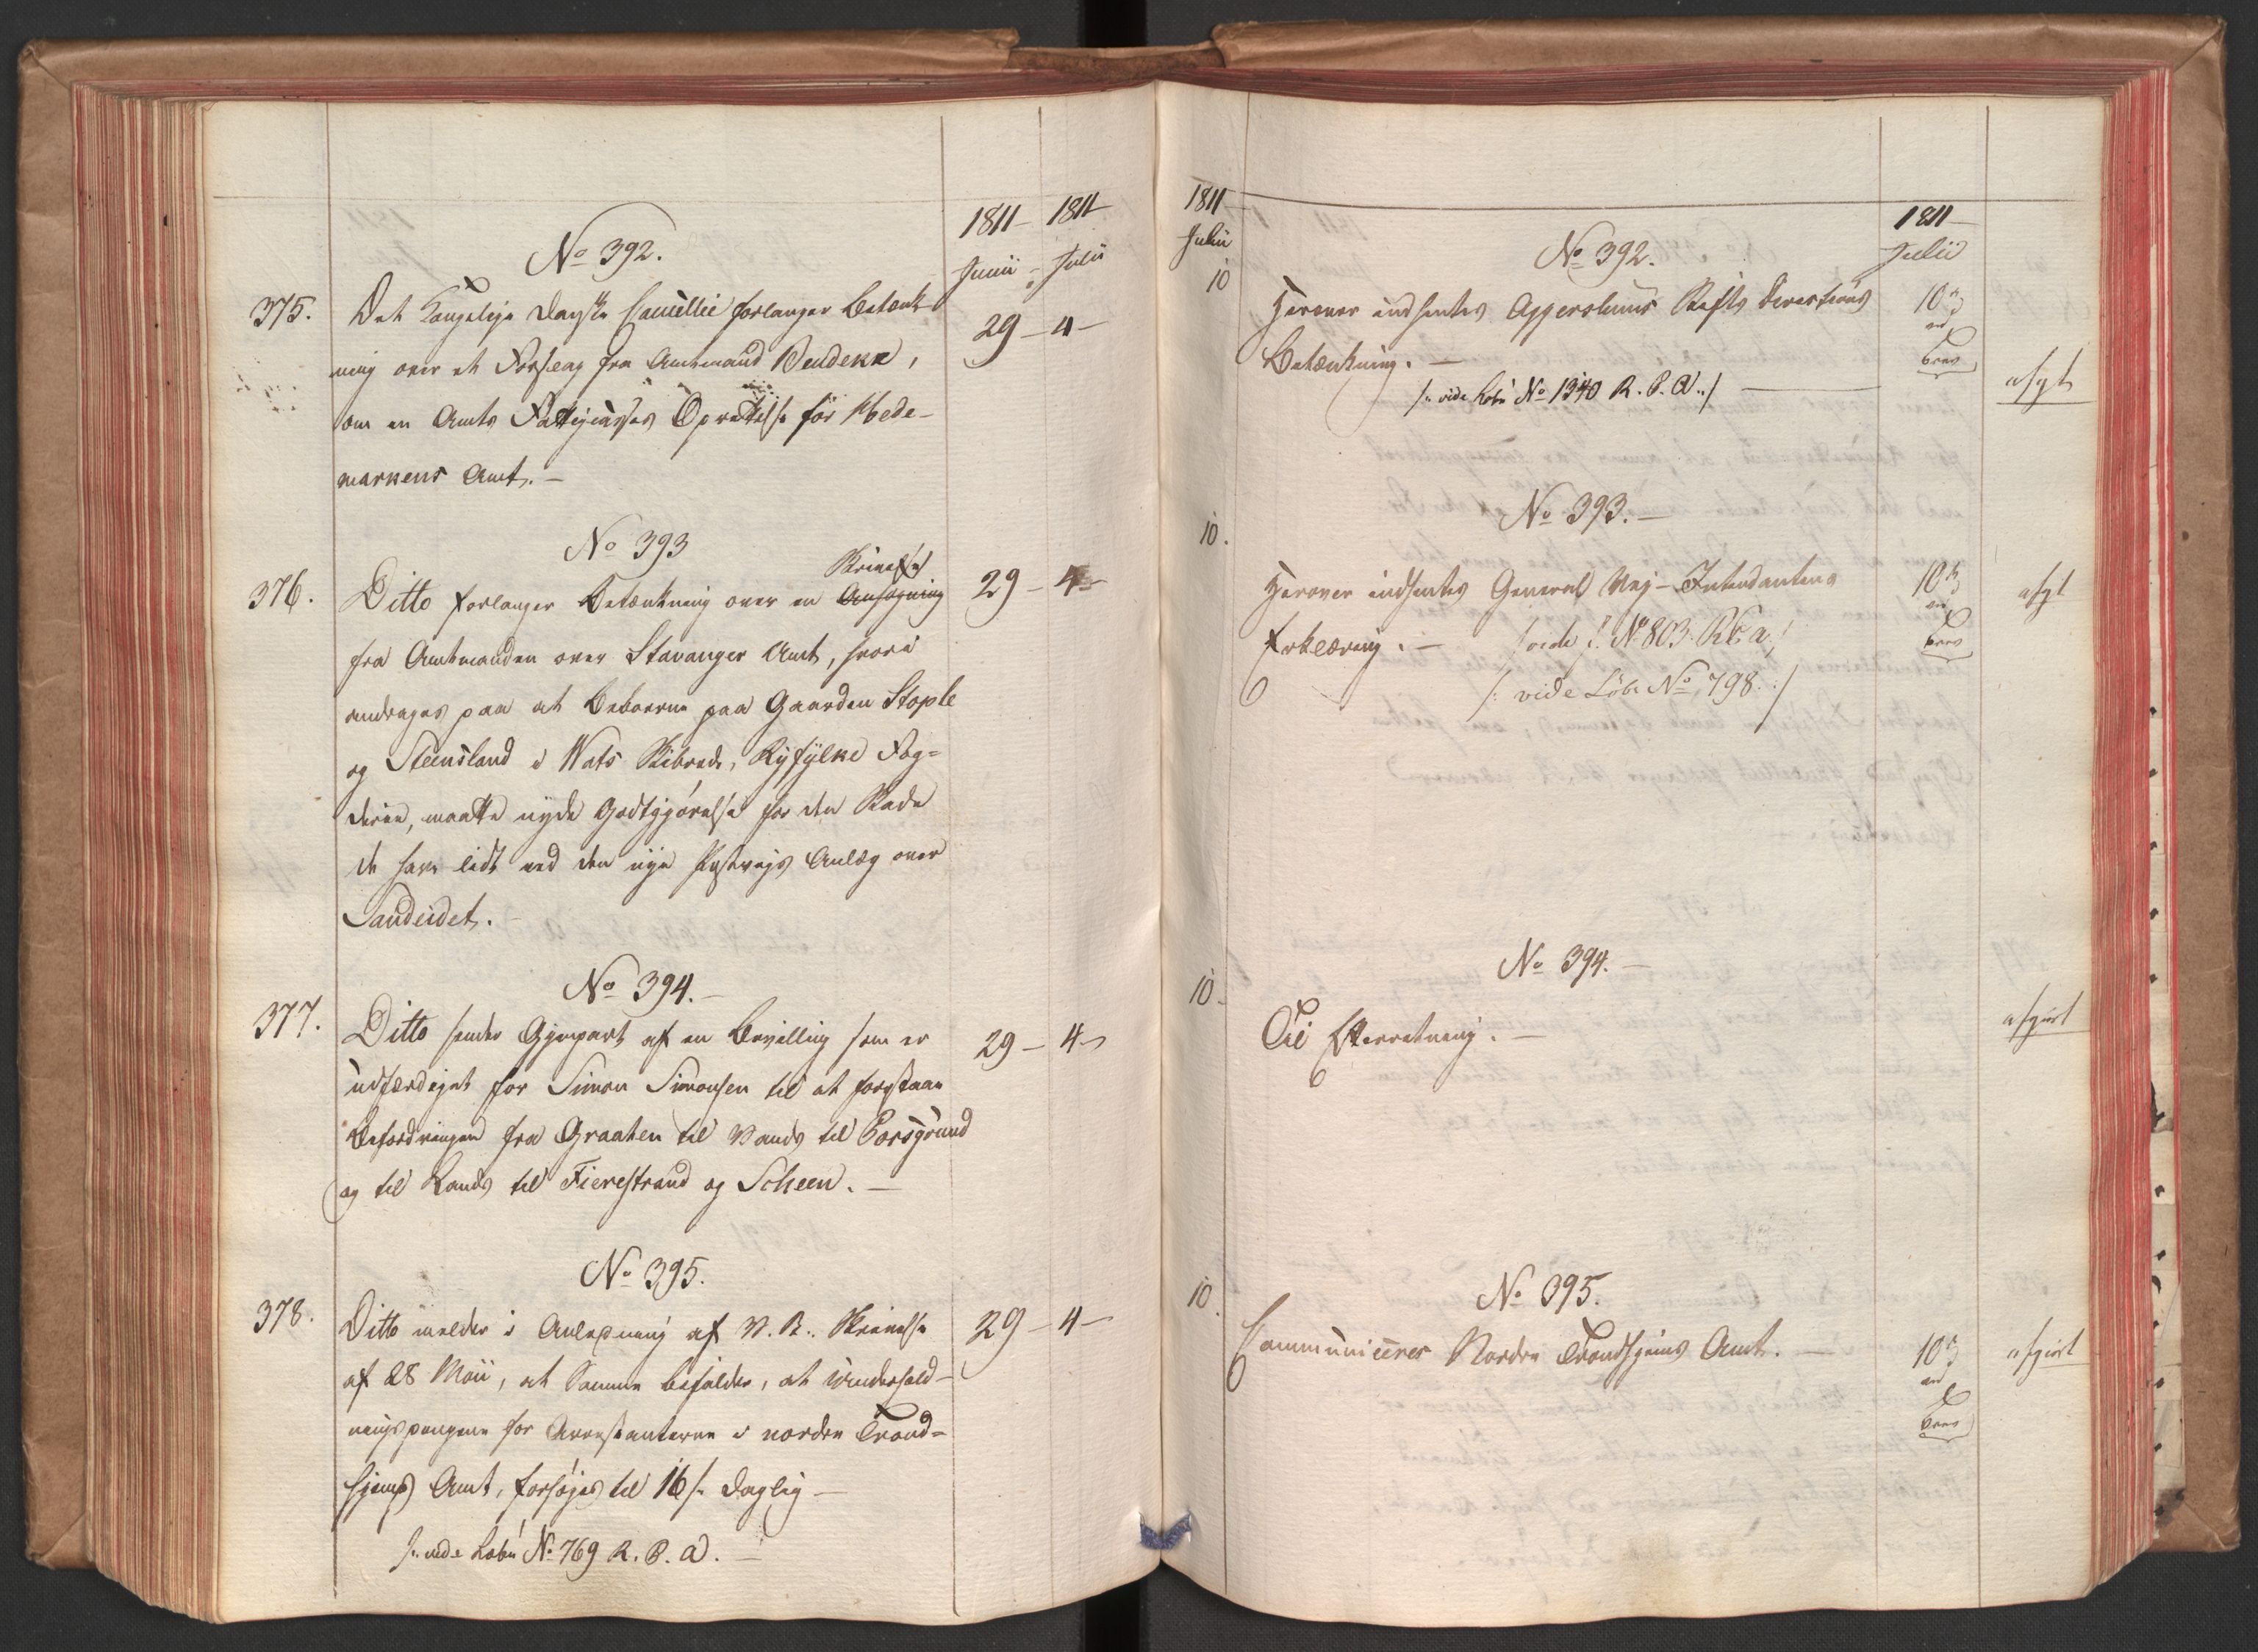 1811 – 1811
Junii – Julii
No 392.
375. Det Kongelige Danske Cancellie forlanger Betænk-
29 – 4 –
ning over et Forslag fra Amtmand Bendeke,
om en Amts Fattigcasses Oprettelse for Hede-
markens Amt. –
No 393
Skrivelse
376. Ditto forlanger Betænkning over en Ansøgning
29 – 4 –
fra Amtmanden over Stavanger Amt, hvori
andrages paa at Beboerne paa Gaarden Stople
og Steensland i Wats Skibrede, Ryfylke Fog-
derie, maatte nyde Godtgjørelse for den Skade
de have lidt ved den nye Postveys Anlæg over
Sandeidet. –
No 394. –
377. Ditto sender Gjenpart af en Bevilling som er
29 – 4 –
udfærdiget for Simon Simonsen til at forestaae
Befordringen fra Graaten til Vands til Porsgrund
og til Lands til Fierestrand og Scheen. –
No 395.
378. Ditto melder i Anledning af V. R. Skrivelse
29 – 4 –
af 28 Maii, at Samme bifalder, at Underhold-
ningspengene for Arrestanterne i nordre Trond-
hjems Amt, forhøjes til 16 s. daglig –
/: vide Løbe No 769 R. P. a. –
1811
Julii
1811
Julii
No 392.
10
Herover indhentes Aggershuus Stifts Directions
10de
ved
Brev
Betænkning. –
afgt
/: vide Løbe No 1340 R. P. a :/
No 393. –
10.
Herover indhentes General Vej-Intendantens
10de
ved
Brev
afgt
Erklæring. – /vide J. No 803. R. P. a./
/: vide Löbe No 798. :/
No 394. –
10.
Til Efterretning. –
afgiort
No 395.
10.
Communiceres Nordre Trondhjems Amt. –
10de
ved
Brev
afgiort